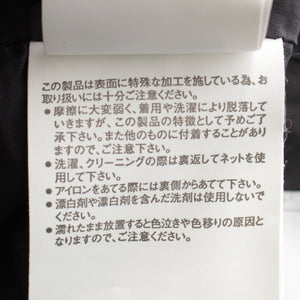 この製品は表面に特殊な加工を施している為、お
取り扱いには十分ご注意ください。
●摩擦に大変弱く、着用や洗濯により脱落して
いきますが、この製品の特徴として予めご了
承下さい。また他のものに付着することがあり
ますので、ご注意下さい。
●洗濯、クリーニングの際は裏返してネットを使
用して下さい。
●アイロンをあてる際には裏側からあてて下さい。
●漂白剤や漂白剤を含んだ洗剤は使用しないで
ください。
●濡れたまま放置すると色泣きや色移りの原因と
なりますので、ご注意下さい。